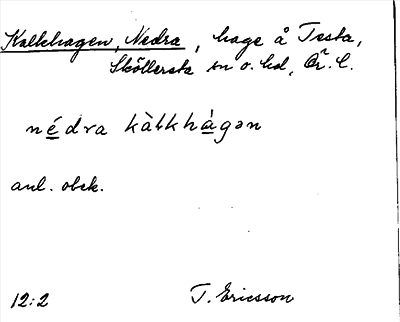 Kalkhagen, Nedra, hage å Testa,
Sköllersta sn o. hd, Ör. l.
nédra kàlkhágən
anl. obek.
12:2 T. Ericsson